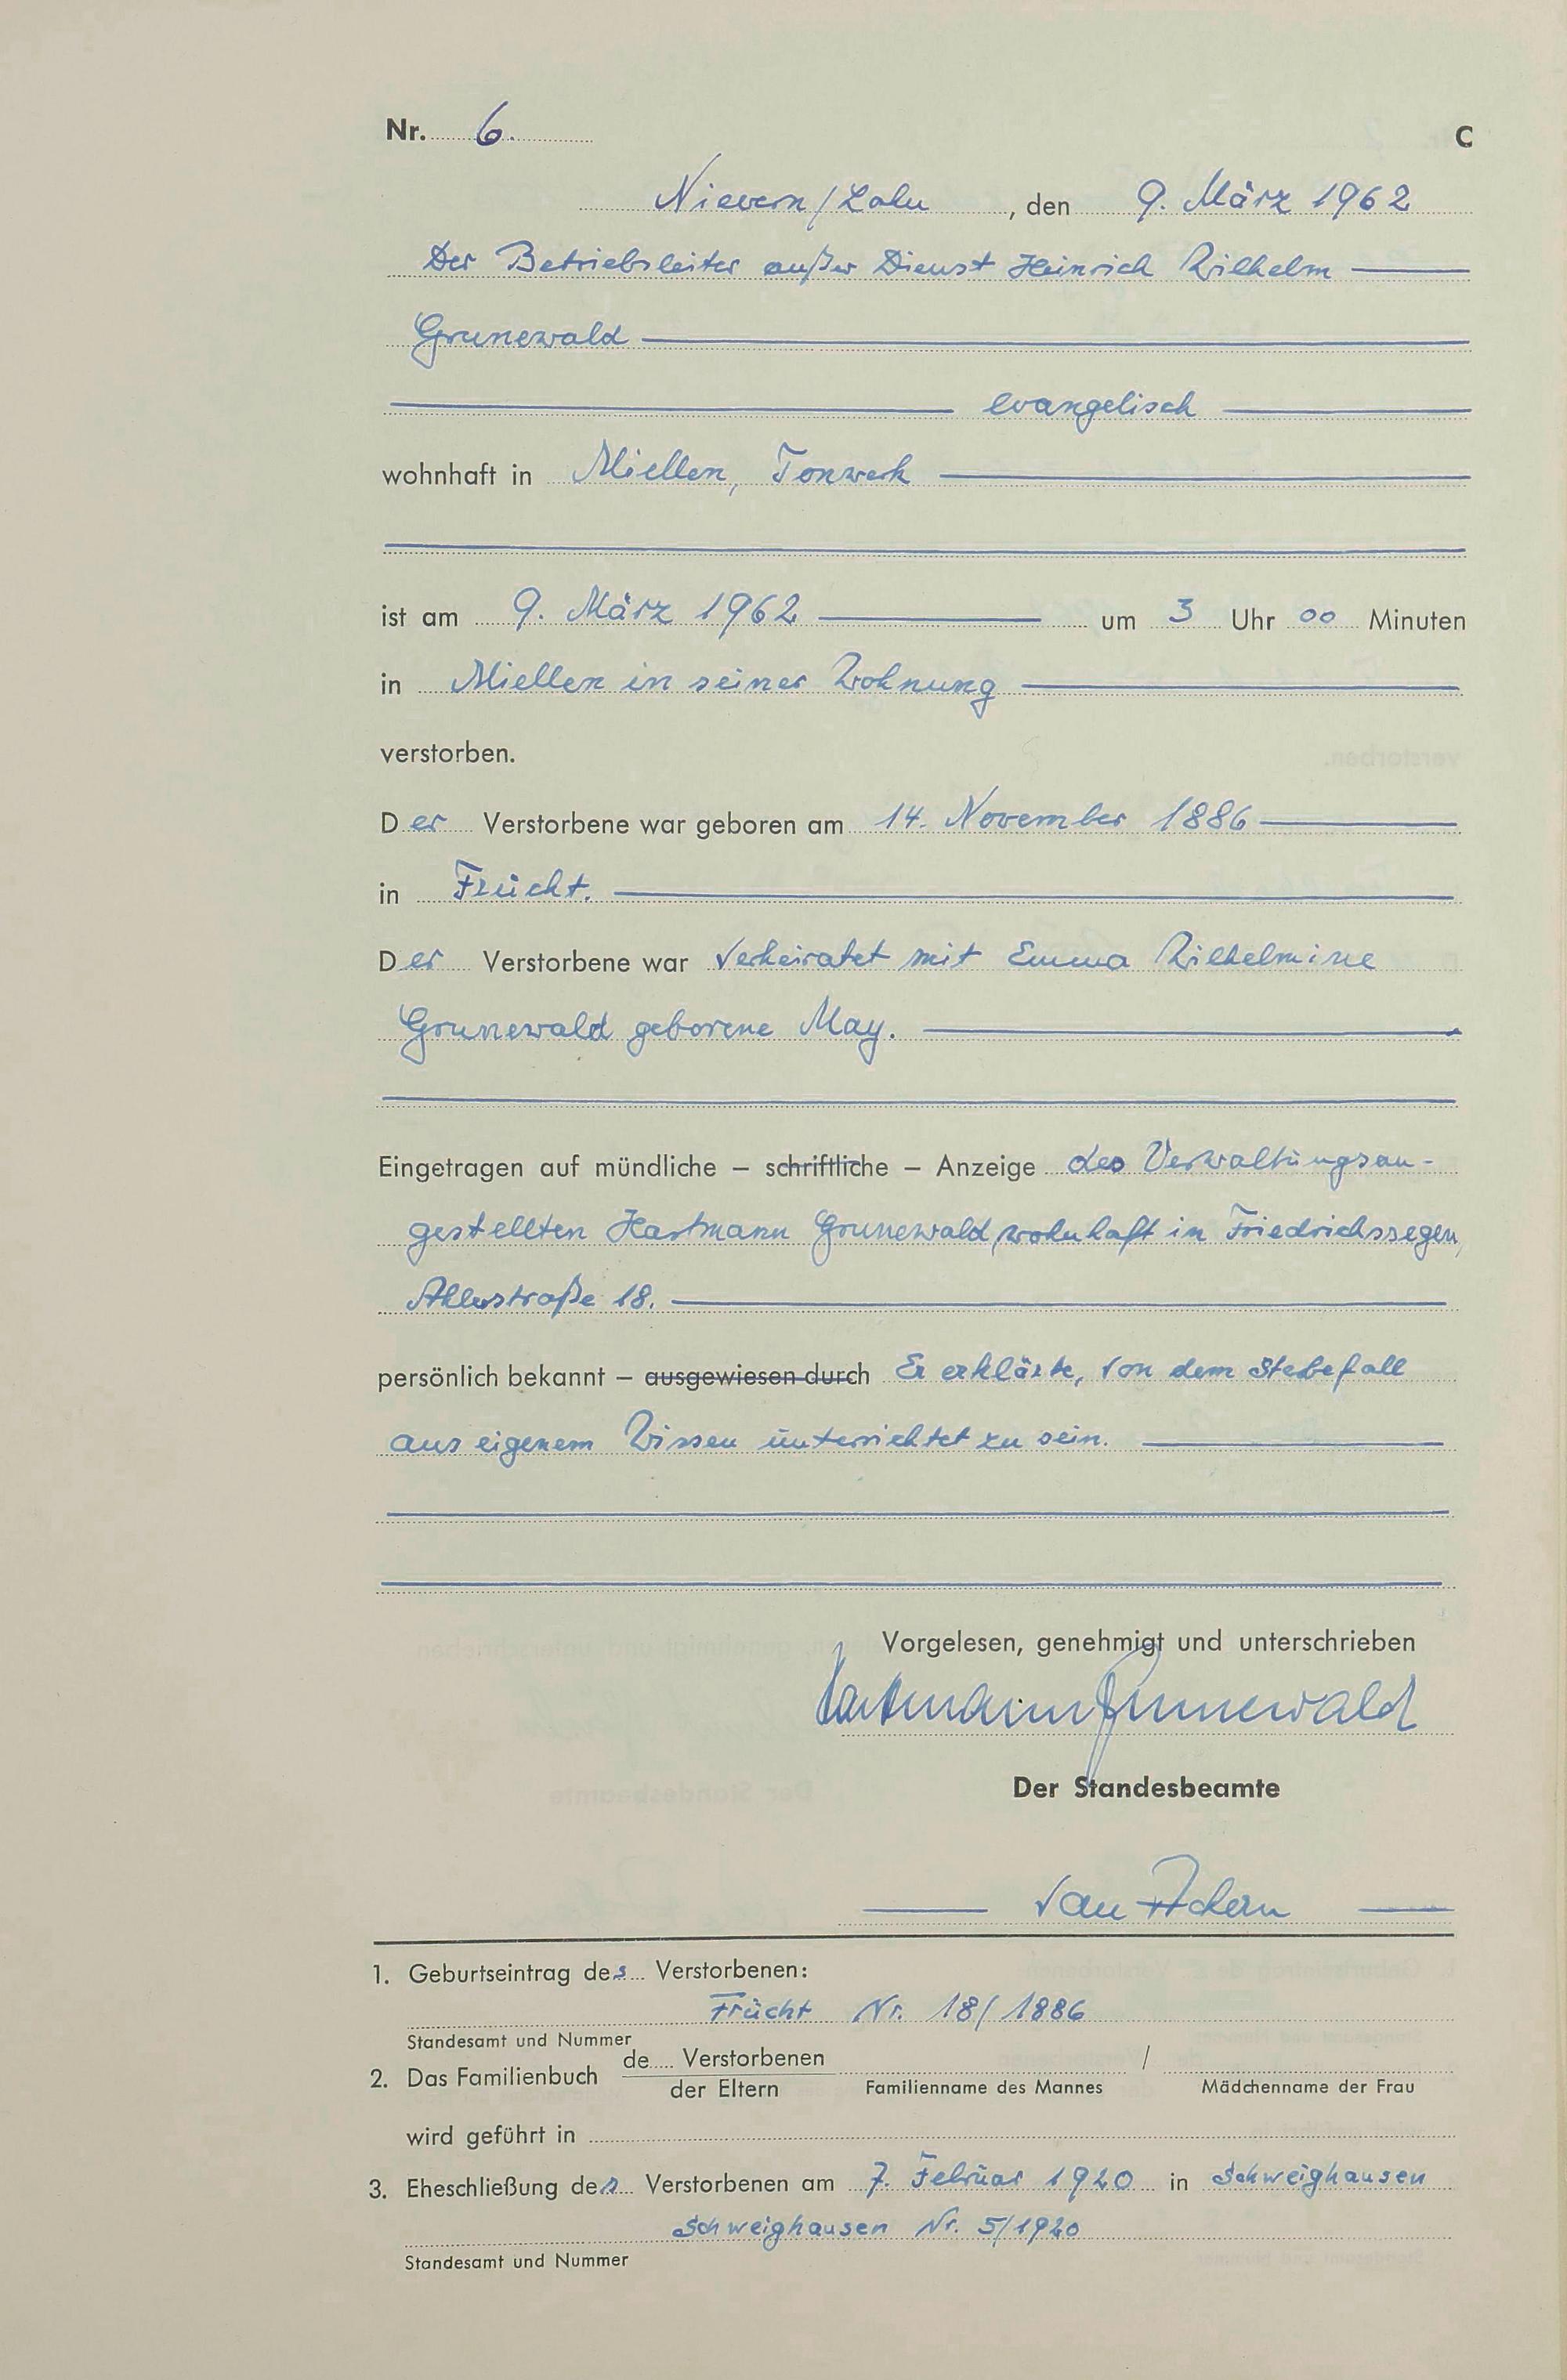 Nr. 6. C
Nievern/Lahn, den 9. März 1962
Der Betriebsleiter außer Dienst Heinrich Wilhelm
Grunewald
evangelisch
wohnhaft in Miellen, Tonwerk
ist am 9. März 1962 um 3 Uhr 00 Minuten
in Miellen in seiner Wohnung
verstorben.
Der Verstorbene war geboren am 14. November 1886
in Frücht.
Der Verstorbene war verheiratet mit Emma Wilhelmine
Grunewald geborene May.
Eingetragen auf mündliche – schriftliche – Anzeige des Verwaltungsan-
gestellten Hartmann Grunewald, wohnhaft in Friedrichssegen,
Ahlerstraße 18.
persönlich bekannt – ausgewiesen durch Er erklärte, von dem Sterbefall
aus eigenem Wissen unterrichtet zu sein.
Vorgelesen, genehmigt und unterschrieben
Hartmann Grunewald
Der Standesbeamte
van
1. Geburtseintrag des Verstorbenen:
Frücht Nr. 18/1886
Standesamt und Nummer
2. Das Familienbuch de Verstorbenen /
der Eltern Familienname des Mannes Mädchenname der Frau
wird geführt in
3. Eheschließung des Verstorbenen am 7. Februar 1920 in Schweighausen
Schweighausen Nr. 5/1920
Standesamt und Nummer